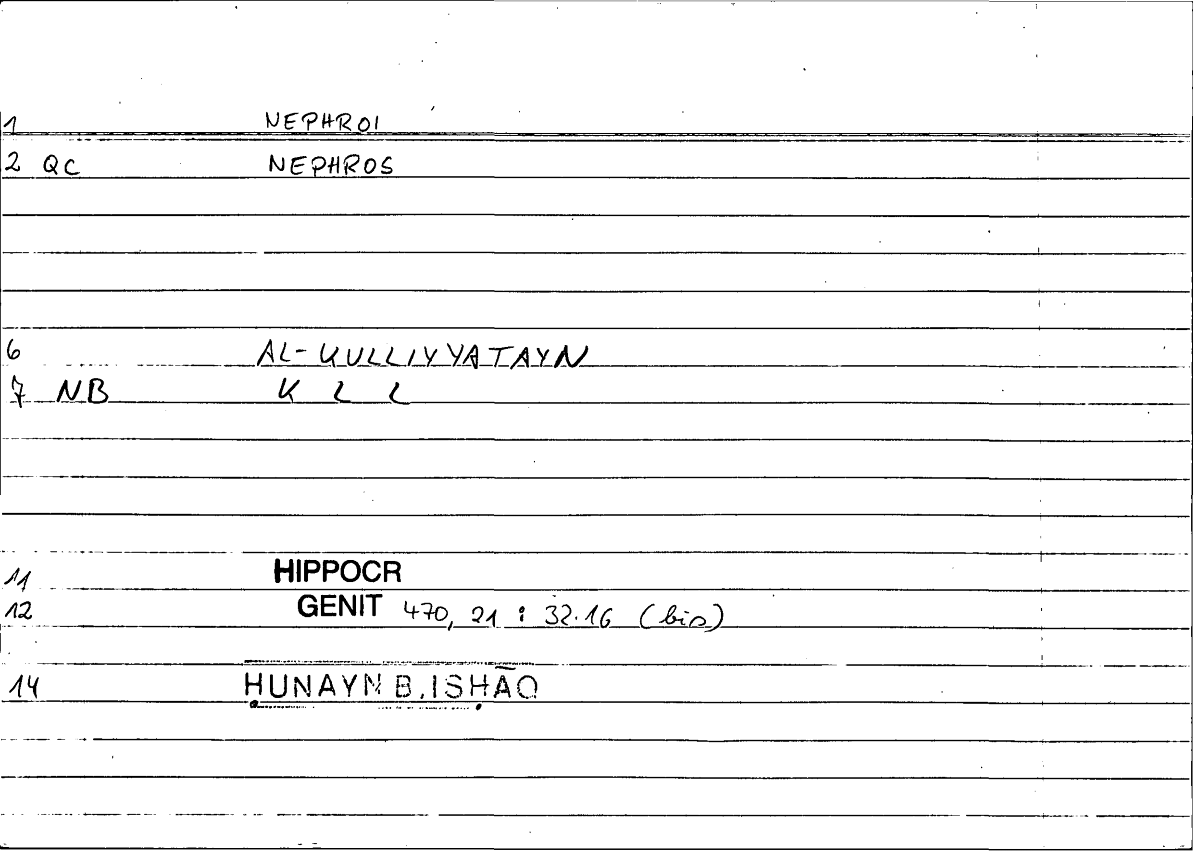 1 NEPHROI
2 QC NEPHROS
6 AL-KULLIYYATAYN
7 NB K L L
11 HIPPOCR
12 GENIT 470, 21 : 32.16 (bis)
14 ḤUNAYN B. ISḤĀQ